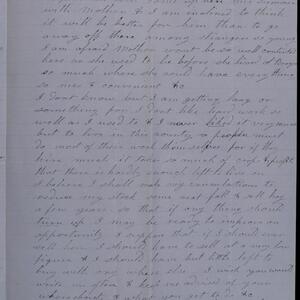 with Mother & I am inclined to think
it will be better for him than to go
away off there among strangers so young
I am afraid Mother wont be so well contented
here as she used to be before she lived at
so much where she could have every thing
so nice & convenient &c
I dont know but I am getting lazy or
something for I dont like farm work so
well as I used to & I never liked it very much
but to live in this country so people must
do most of their work themselves for if they
hire much it takes so much of crop & profits
that there is hardly enough left to live on
I believe I shall make my calculations to
reduce my stock some next fall & sell hay
a few years so that if any thing should
turn up I may be ready to improve an
opportunity I suppose that if I should ever
sell here I should have to sell at a very low
figure & I should have but little left to
buy with any where else I wish you would
write us often & keep us advised of your
whereabouts & what you get to do &c